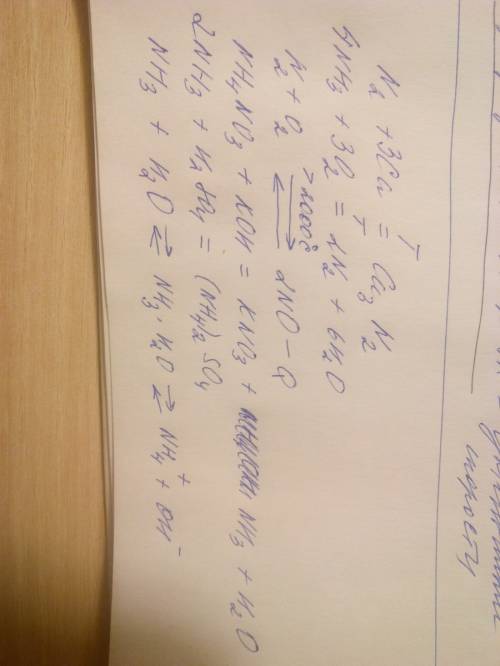 N₂ + 3Ca =ᵀ Ca₃N₂
4NH₃ + 3O₂ =ᵀ 2N₂ + 6H₂O
N₂ + O₂ ⇄ 2NO - Q
NH₄NO₃ + KOH = KNO₃ + NH₃ + H₂O
2NH₃ + H₂SO₄ = (NH₄)₂SO₄
NH₃ + H₂O ⇄ NH₃·H₂O ⇄ NH₄⁺ + OH⁻